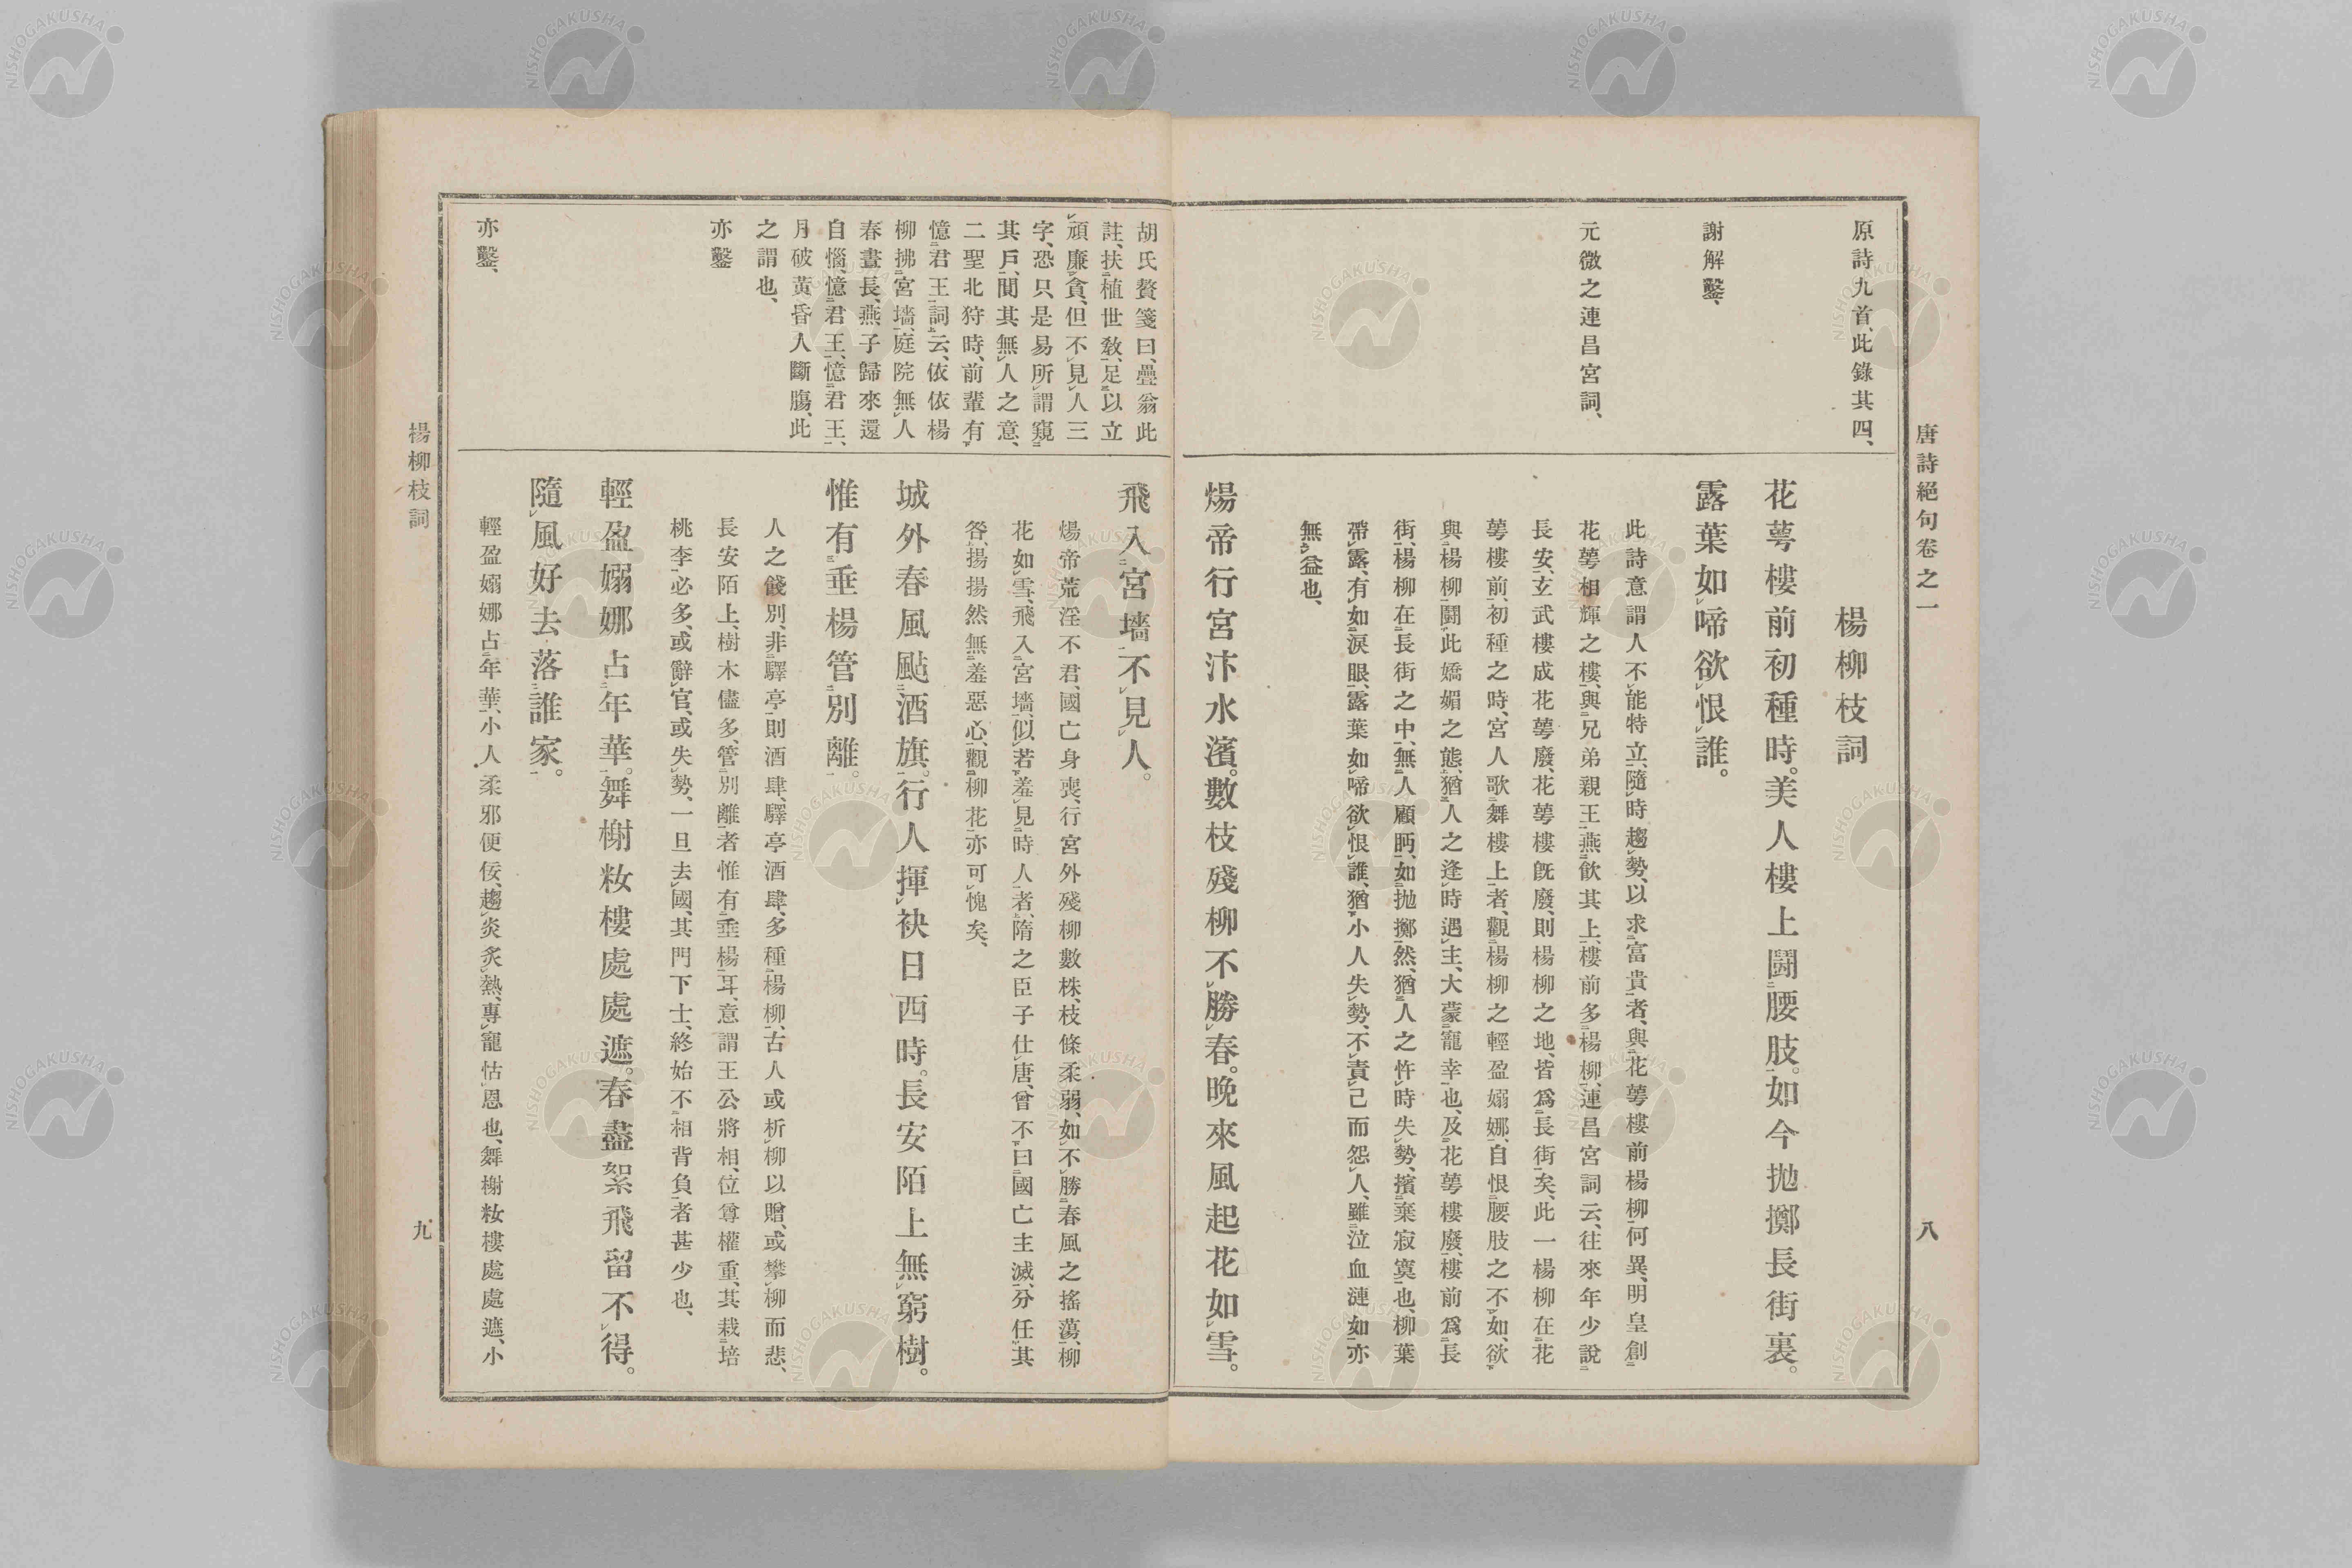 唐詩絕句卷之一
八
原詩九首、此錄其四、
謝解鑿、
元微之連昌宮詞、
楊柳枝詞
花萼樓前初種時。美人樓上鬪腰肢。如今拋擲長街裏。
露葉如啼欲恨誰。
此詩意謂人不能特立、隨時趨勢、以求富貴者、與花萼樓前楊柳何異、明皇創
花萼相輝之樓、與兄弟親王燕飲其上、樓前多楊柳、連昌宮詞云、往來年少說
長安、玄武樓成花萼廢、花萼樓既廢、則楊柳之地、皆爲長街矣、此一楊柳在花
萼樓前、初種之時、宮人歌舞樓上者、觀楊柳之輕盈嫋娜、自恨腰肢之不如、欲
與楊柳鬪此嬌媚之態、猶人之逢時遇主、大蒙寵幸也、及花萼樓廢、樓前爲長
街、楊柳在長街之中、無人顧眄、如拋擲然、猶人之忤時失勢、擯棄寂寞也、柳葉
帶露、有如淚眼、露葉如啼欲恨誰、猶小人失勢、不責己而怨人、雖泣血漣如亦
無益也、
煬帝行宮汴水濱。數枝殘柳不勝春。晚來風起花如雪。
胡氏贅箋曰、疊翁此
註、扶植世教、足以立
頑廉貪、但不見人三
字、恐只是易所謂窺
其戶、闃其無人之意、
二聖北狩時、前輩有
憶君王詞云、依依楊
柳拂宮墻、庭院無人
春晝長、燕子歸來還
自惱、憶君王、憶君王、
月破黃昏人斷腸、此
之謂也、
亦鑿
亦鑿、
飛入宮墻不見人。
煬帝荒淫不君、國亡身喪、行宮外殘柳數株、枝條柔弱、如不勝春風之搖蕩、柳
花如雪、飛入宮墻、似若羞見時人者、隋之臣子仕唐、曾不曰國亡主滅、分任其
咎、揚揚然無羞惡心、觀柳花亦可愧矣、
城外春風颭酒旗。行人揮袂日西時。長安陌上無窮樹。
惟有垂楊管別離。
人之餞別、非驛亭則酒肆、驛亭酒肆、多種楊柳、古人或析柳以贈、或攀柳而悲、
長安陌上、樹木儘多、管別離者惟有垂楊耳、意謂王公將相、位尊權重、其栽培
桃李必多、或辭官、或失勢、一旦去國、其門下士、終始不相背負者甚少也、
輕盈嫋娜占年華。舞榭妝樓處處遮。春盡絮飛留不得。
隨風好去落誰家。
輕盈嫋娜占年華、小人柔邪便佞、趨炎炙熱、專寵怙恩也、舞榭妝樓處處遮、小
楊柳枝詞
九